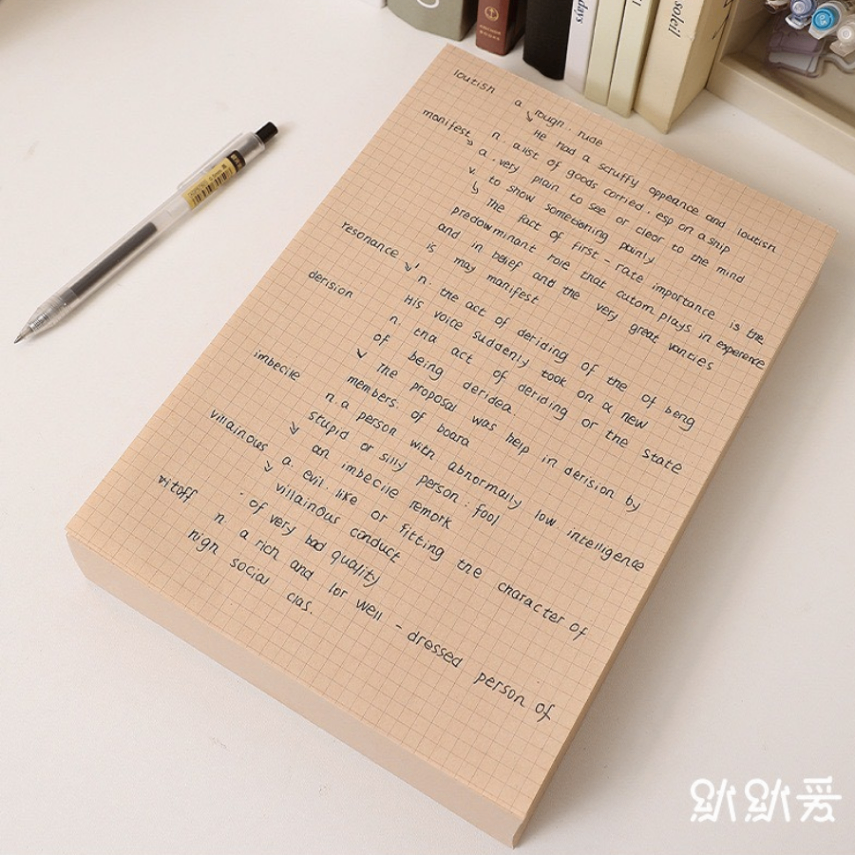 loutish a rough. rude
He had a scruffy oppeance and loutish
manifest n. alist of goods carried. esp on a ship
a. very plain to see or clear to the mind
v. to show sometioning painly
The fact of first-rate importance is the
predowminant role that cutom plays in experience
and in belief and the very great vanties
is may manifest
resonance n. the act of deriding of the of beng
His voice suddenly took on a new
derision n. tna act of deriding or the state
of being deridea.
The proposal was help in derision by
members of boara
imbecile n. a person with abnormally low intelligence
stupid or silly person: fool
an imbecile remork
villainous a. evil. like or fitting the character of
villainous conduct
. of very bad quality
ritoff n. a rich and lor well-dressed person of
nigh social clas.
days
soleil
趴趴爱